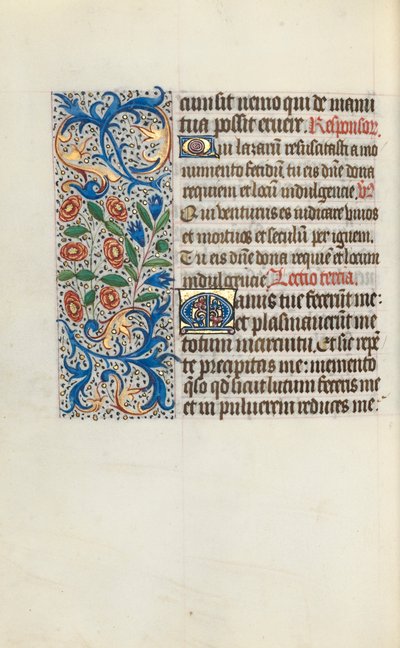 cum sit nemo qui de manu
tua possit eruere. Responsor.
Qui lazarum resuscitasti a mo
numento fetidum tu eis dñe dona
requiem et locum indulgencie. V.
Qui venturus es iudicare vivos
et mortuos et seculum per ignem.
Tu eis dñe dona requiē et locum
indulgencie. Lectio tercia.
Manus tue fecerūt me:
et plasmaverūt me
totum in circuitu. Et sic repē
te precipitas me: memento
qso qd sicut lutum feceris me
et in pulverem reduces me: